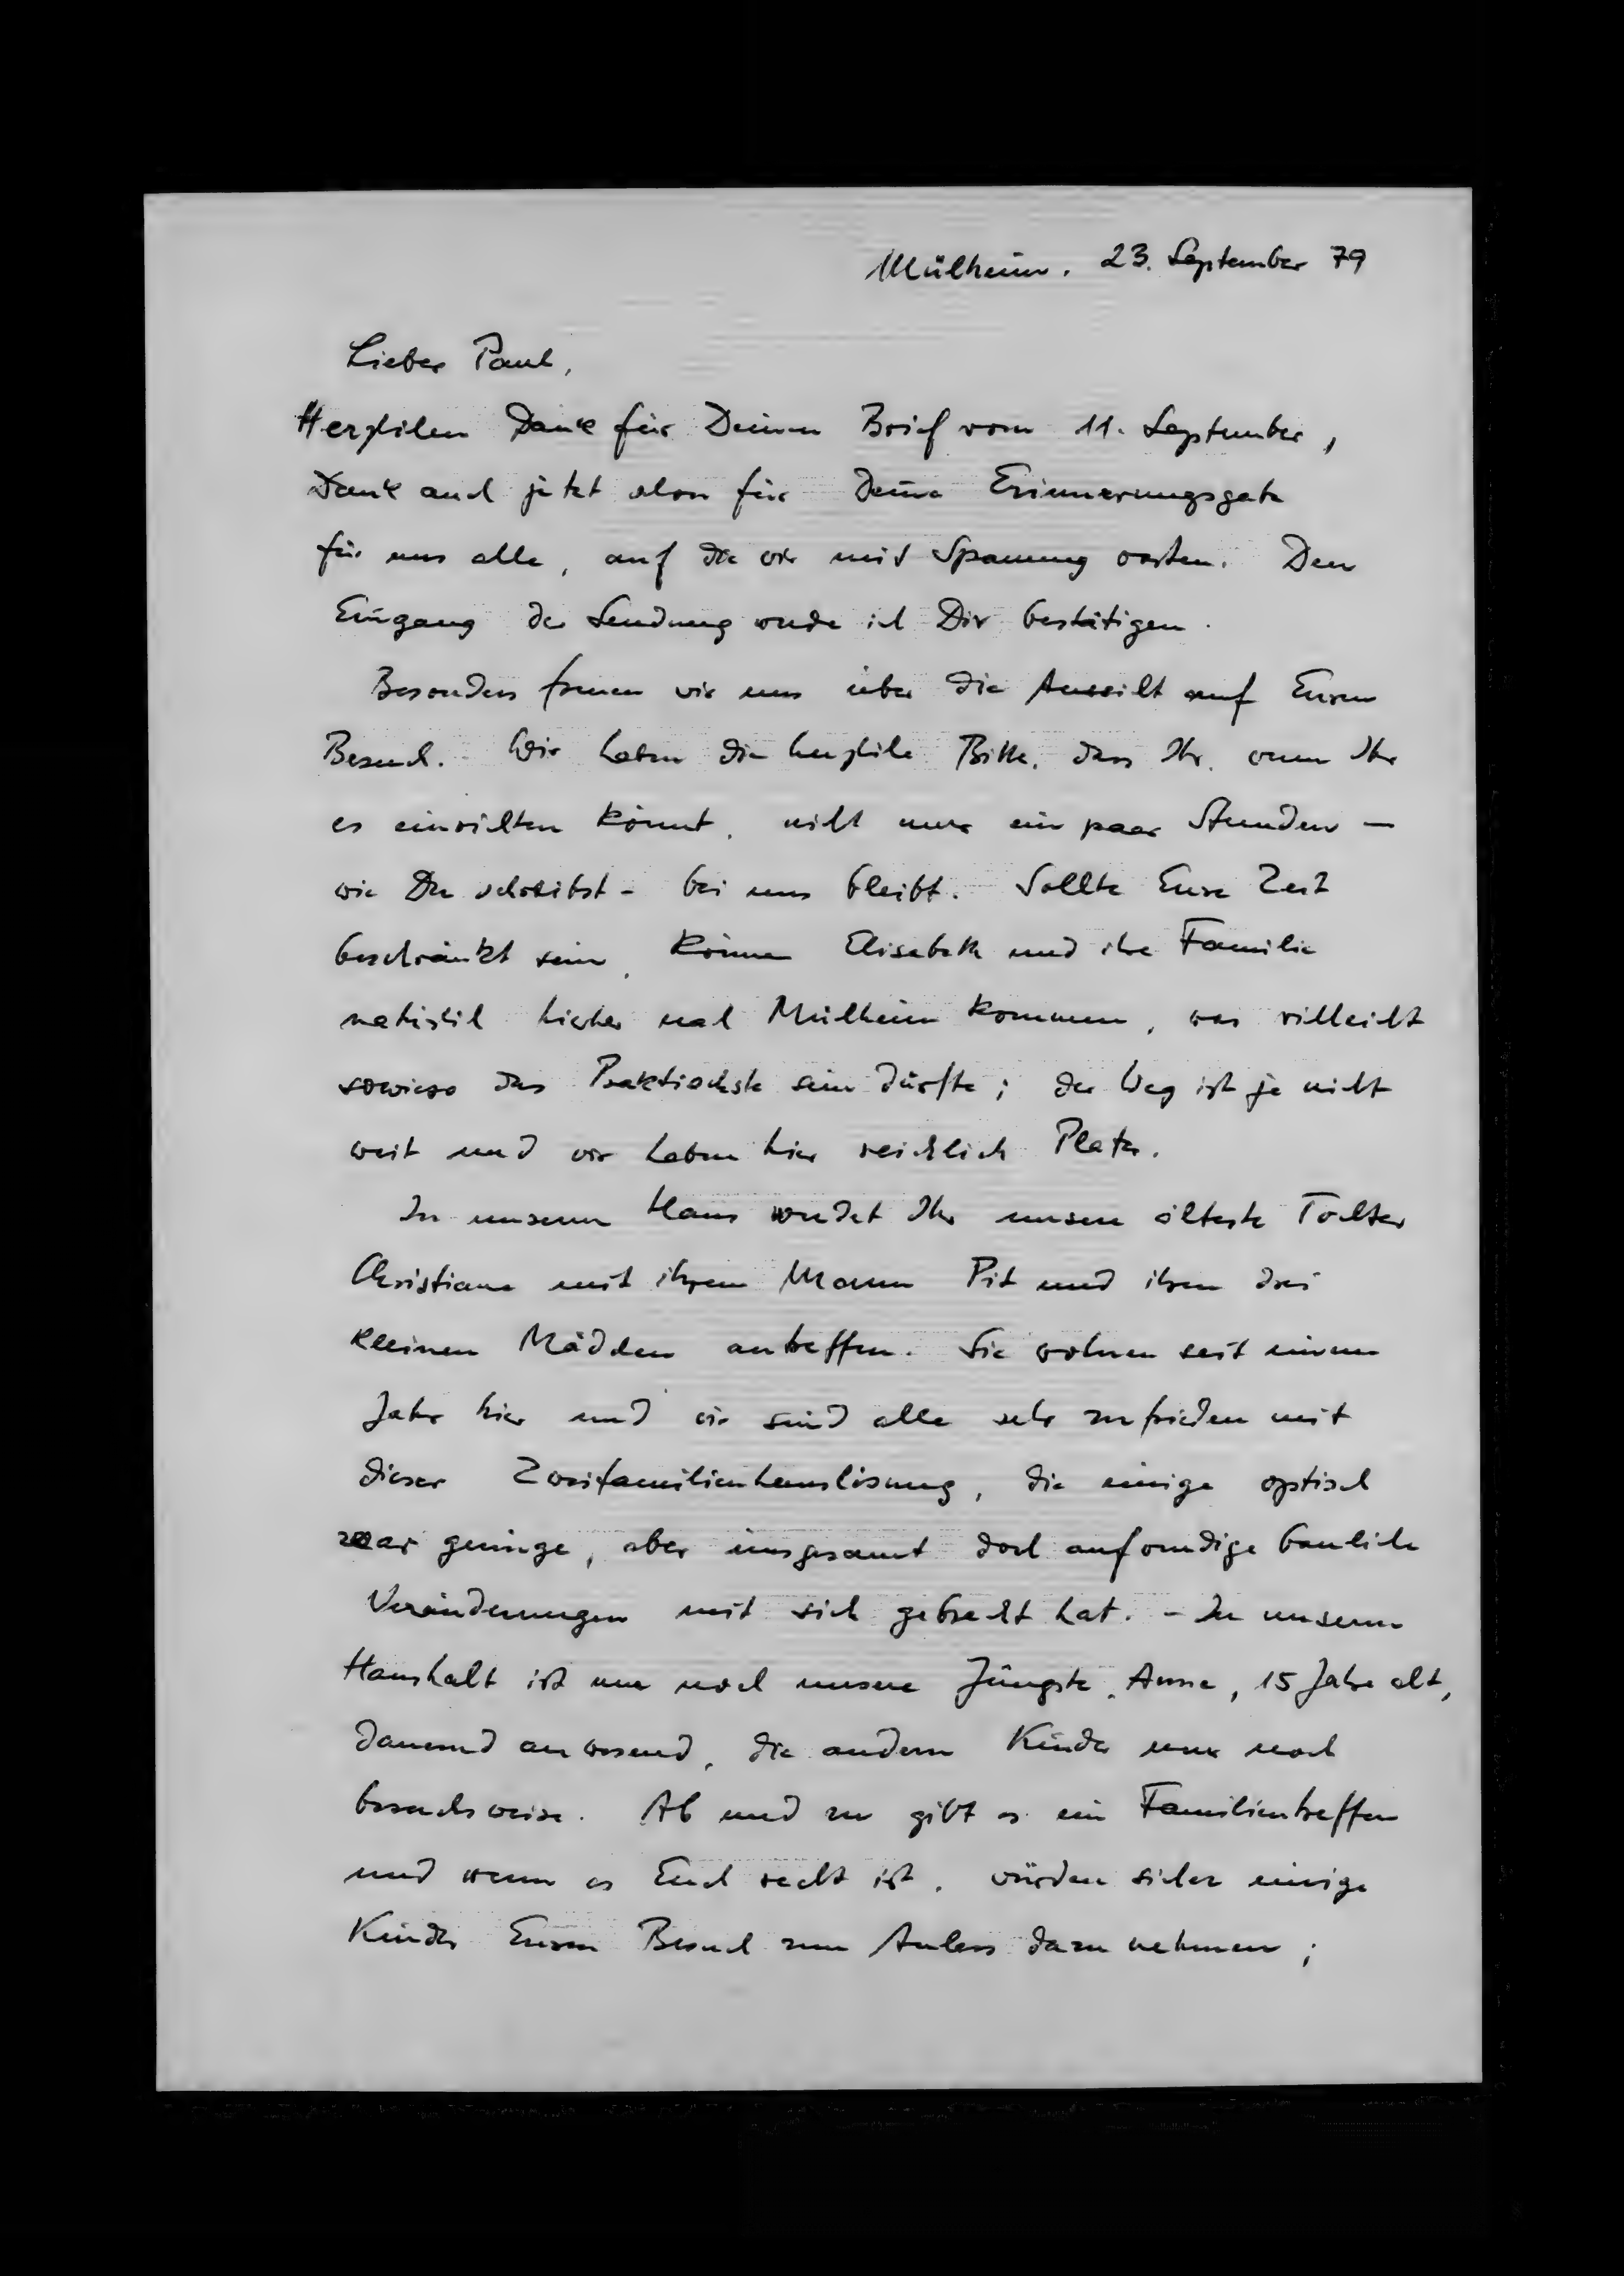 Mülheim. 23. September 79
Lieber Paul,
Herzlichen Dank für Deinen Brief vom 11. September,
Dank auch jetzt schon für Deine Erinnerungsgabe
für uns alle, auf die wir mit Spannung warten. Den
Eingang der Sendung werde ich Dir bestätigen.
Besonders freuen wir uns über die Aussicht auf Euren
Besuch. Wir haben die herzliche Bitte, dass Ihr, wenn Ihr
es einrichten könnt, nicht nur ein paar Stunden –
wie Du schreibst – bei uns bleibt. Sollte Eure Zeit
beschränkt sein, können Elisabeth und ihre Familie
natürlich hierher nach Mülheim kommen, was vielleicht
sowieso das Praktischste sein dürfte; der Weg ist ja nicht
weit und wir haben hier reichlich Platz.
In unserem Haus werdet Ihr unsere älteste Tochter
Christiane mit ihrem Mann Pit und ihren drei
kleinen Mädchen antreffen. Sie wohnen seit einem
Jahr hier und wir sind alle sehr zufrieden mit
dieser Zweifamilienhauslösung, die einige optisch
zwar geringe, aber insgesamt doch aufwendige bauliche
Veränderungen mit sich gebracht hat. – In unserem
Haushalt ist nur noch unsere Jüngste, Anne, 15 Jahre alt,
dauernd anwesend, die andern Kinder nur noch
besuchsweise. Ab und zu gibt es ein Familientreffen
und wenn es Euch recht ist, würden sicher einige
Kinder Euren Besuch zum Anlass dazu nehmen;